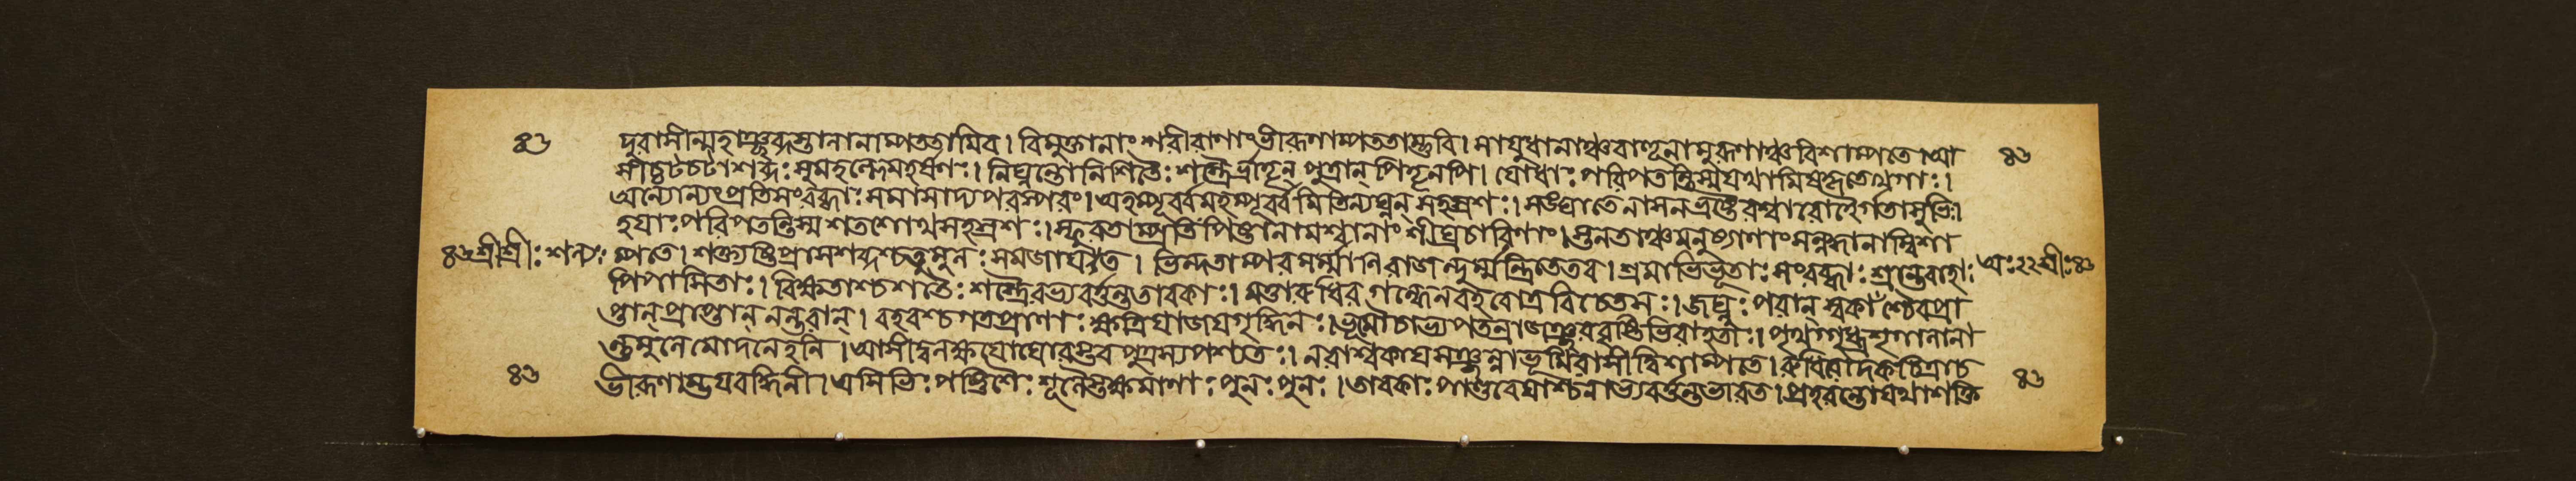 ৪৬ দুরাসীন্মহাঞ্ছব্দস্তালানাম্পততামিব। বিমুক্তানাং শরীরাণাং ভীরূণাম্পততাম্ভুবি। মাযুধানাঞ্চবাহূনামুরূণাঞ্চবিশাম্পতে।আ ৪৬
সীচ্চটচটাশব্দঃ সুমহান্লোমহর্ষণঃ। নিঘ্নন্তোনিশিতৈঃ শস্ত্রৈর্ভ্রাতৄন্ পুত্রান্ পিতৄনপি। যোধাঃ পরিপতন্তিস্মযথামিষকৃতেখগাঃ।
অন্যোন্যংপ্রতিসংরব্ধাঃ সমাসাদ্যপরস্পরং। অহম্পূর্ব্বমহম্পূর্ব্বমিতিন্যঘ্নন্ সহস্রশঃ। সঙ্ঘাতেনাসনভ্রষ্টৈরশ্বারোহৈর্গতাসুভিঃ।
হযাঃ পরিপতন্তিস্ম শতশোথসহস্রশঃ। স্ফুরতাম্প্রতিপিষ্টানামশ্বানাং শীঘ্রচারিণাং। স্তনতাঞ্চমনুষ্যাণাংসন্নদ্ধানাম্বিশা
৪৬শ্রীশ্রীঃ শল্যঃ ম্পতে। শক্ত্যষ্টিপ্রাসশব্দশ্চতুমুলঃ সমজাযত। ভিন্দতাম্পরমর্ম্মাণিরাজন্দুর্ম্মন্ত্রিতেতব। শ্রমাভিভূতাঃ সংরব্ধাঃ শ্রান্তবাহাঃ অঃ২২শ্রীঃ৪৬
পিপাসিতাঃ। বিক্ষতাশ্চশতৈঃ শস্ত্রৈরভ্যবর্ত্তন্ততাবকাঃ। মত্তারুধিরগন্ধেনবহবোত্রবিচেতসঃ। জঘ্নুঃ পরান্ স্বকাঁশ্চৈবপ্রা
প্তান্ প্রাপ্তান্ নন্তরান্। বহবশ্চগতপ্রাণাঃ ক্ষত্রিযাজযগৃদ্ধিনঃ। ভূমৌচাভ্যপতন্রাজঞ্ছরবৃষ্টিভিরাহতাঃ। পৃথগ্গৃধ্রশৃগালানা
ন্তুমুলেমোদনেহনি। আসীদ্বলক্ষযোঘোরস্তবপুত্রস্যপশ্যতঃ। নরাশ্বকাযসঞ্ছন্নাভূমিরাসীদ্বিশাম্পতে। রুধিরোদকচিত্রাচ
৪৬ ভীরূণাম্ভযবর্দ্ধিনী। এসিভিঃ পট্টিশৈঃ শূলৈস্তক্ষমাণাঃ পুনঃ পুনঃ। তাবকাঃ পাণ্ডবেযাশ্চনাভ্যবর্ত্তন্তভারত। প্রহরন্তোযথাশক্তি ৪৬